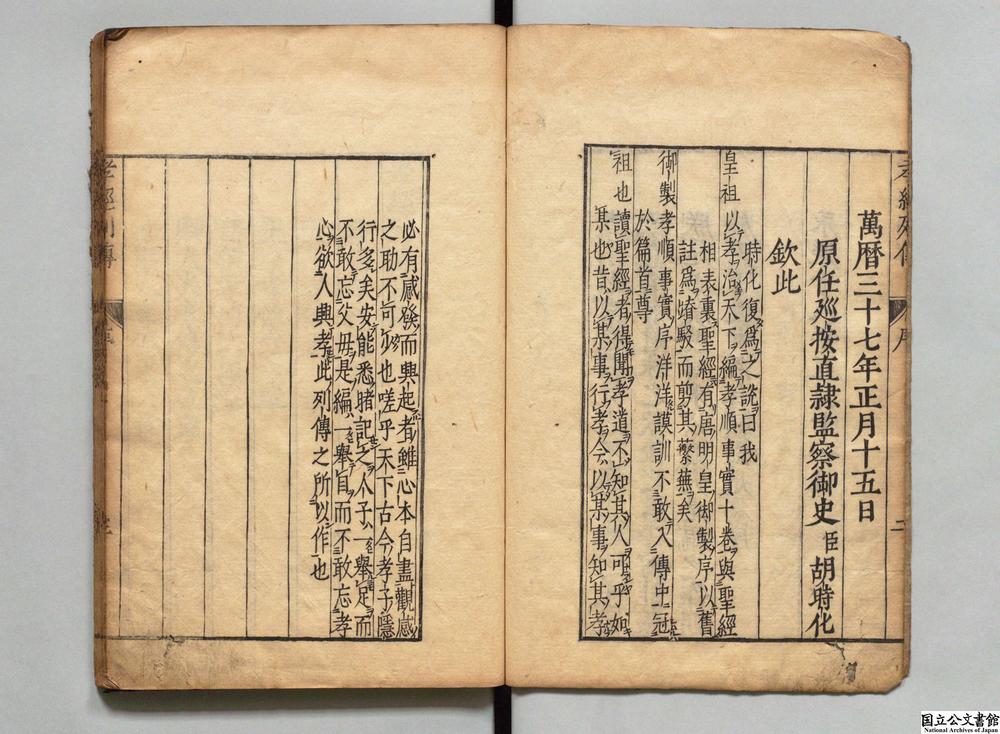 萬曆三十七年正月十五日
原任廵按直隷監察御史臣胡時化
欽此
時化復爲之說曰我
皇祖以孝治天下編孝順事實十卷與聖經
相表裏聖經有唐明皇御製序以舊
註爲踳駁而剪其蘩蕪矣
御製孝順事實序洋洋謨訓不敢入傳中冠
於篇首尊
祖也讀聖經者得聞孝道不知其人可乎如
某也昔以某事行孝今以某事知其孝
必有感發而興起者雖心本自盡觀感
之助不可少也嗟乎天下古今孝子隱
行多矣安能悉睹記之人子一舉足而
不敢忘父母是編一舉旨而不敢忘孝
心欲人與孝此列傳之所以作也
孝經列傳
序
二
孝經列傳
国立公文書館
National Archives of Japan